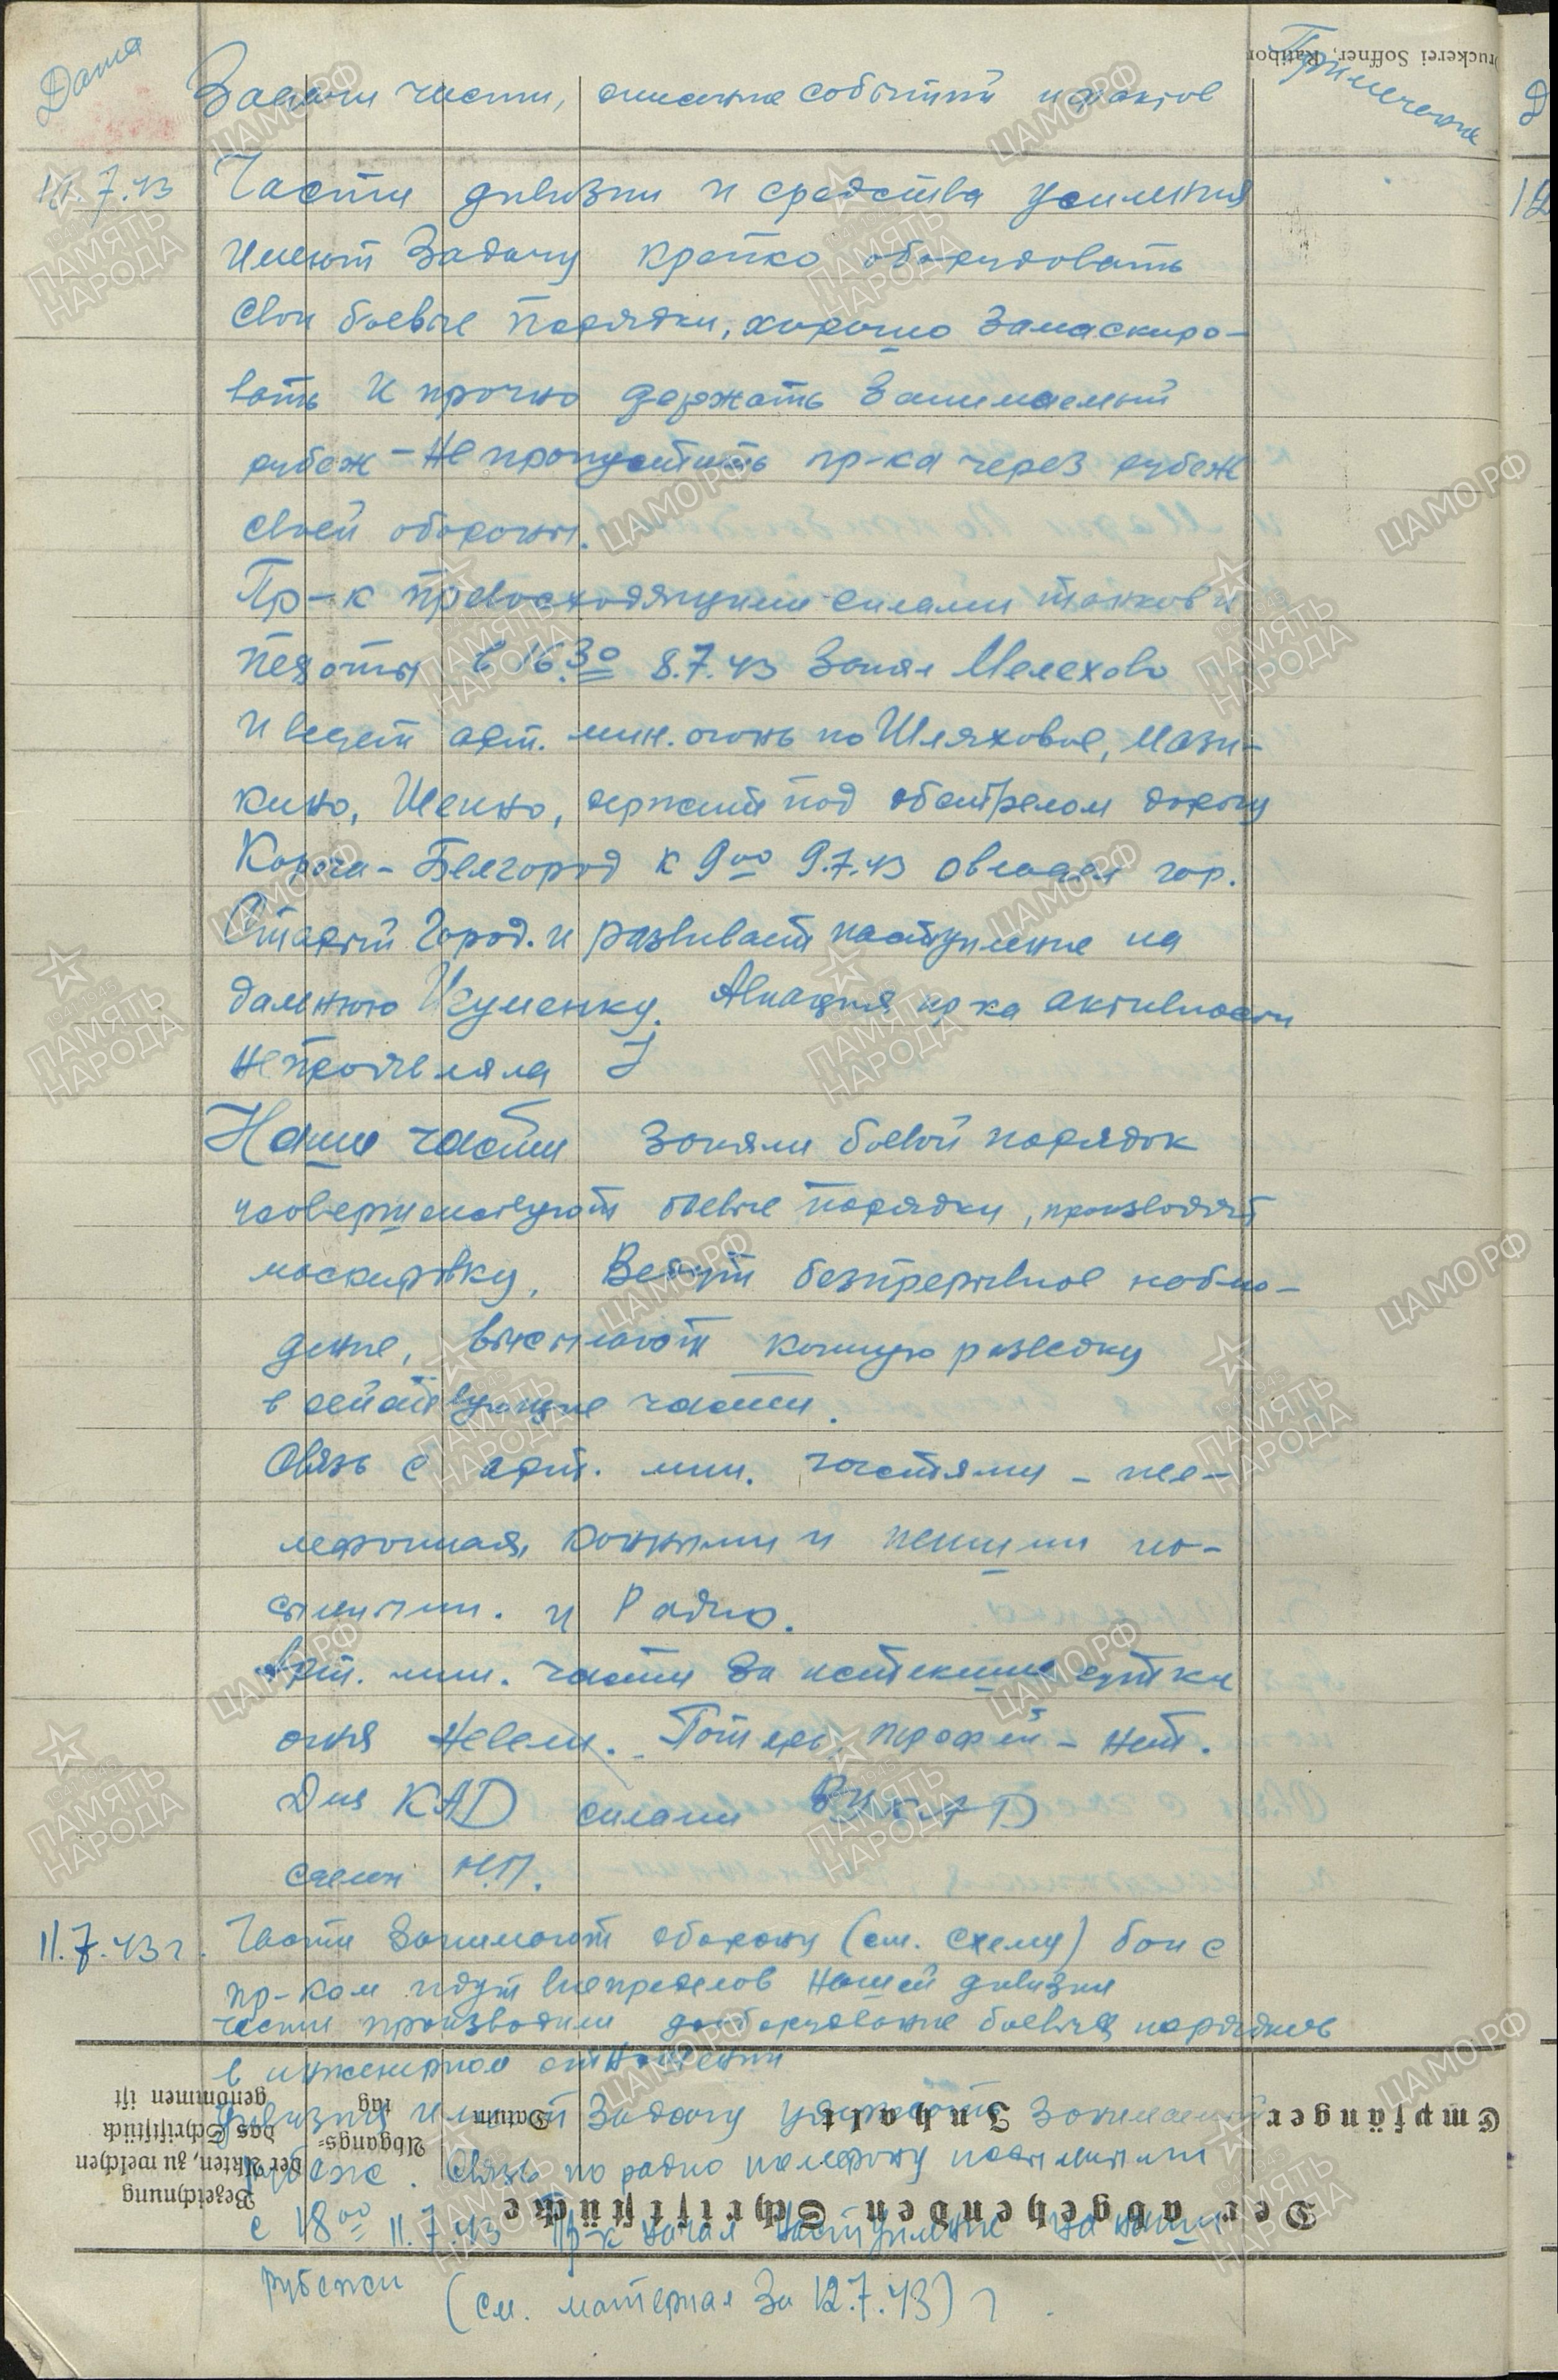 Дата
Задачи части, описание событий и фактов
Примечание
Druckerei Soffner, Ratibor
11.7.43 Части дивизии и средства усиления
имеют задачу крепко оборудовать
свои боевые порядки, хорошо замаскиро-
вать и прочно держать занимаемый
рубеж - не пропустить пр-ка через рубеж
своей обороны.
Пр-к превосходящими силами танков и
пехоты в 16.30 8.7.43 занял Мелехово
и ведет арт. мин. огонь по Шляховое, Мази-
кино, Шеино, держит под обстрелом дорогу
Короча - Белгород к 9 00 9.7.43 овладел гор.
Старый Город. и развивает наступление на
дальнюю Игуменку. Авиация пр-ка активности
не проявляла
Наши части заняли боевой порядок
и совершенствуют боевые порядки, производят
маскировку. Ведут безпрерывное наблю-
дение, высылают конную разведку
в действующие части.
Связь с арт. мин. частями - теле-
лефонная, конными и пешими по-
сыльными. и Радио.
Арт. мин. части за истекшие сутки
огня не вели. Потерь, трофей - нет.
Для КАД силами
сделан Н.П.
11.7.43 г. Части занимают оборону (см. схему) бои с
пр-ком идут вне пределов нашей дивизии
части производили дооборудование боевых порядков
в инженерном отношении
дивизия имеет задачу удержать занимаемый
рубеж. Связь по радио телефону посыльными
с 18 00 11.7.43 Пр-к начал наступление на наши
рубежи (см. материал за 12.7.43) г
Der abgehenden Schriftstücke
Empfänger
Inhalt
Datum
Abgangs=
tag
Bezeichnung
der Akten, zu welchen
das Schriftstück
genommen ist
ЦАМО РФ
ПАМЯТЬ
НАРОДА